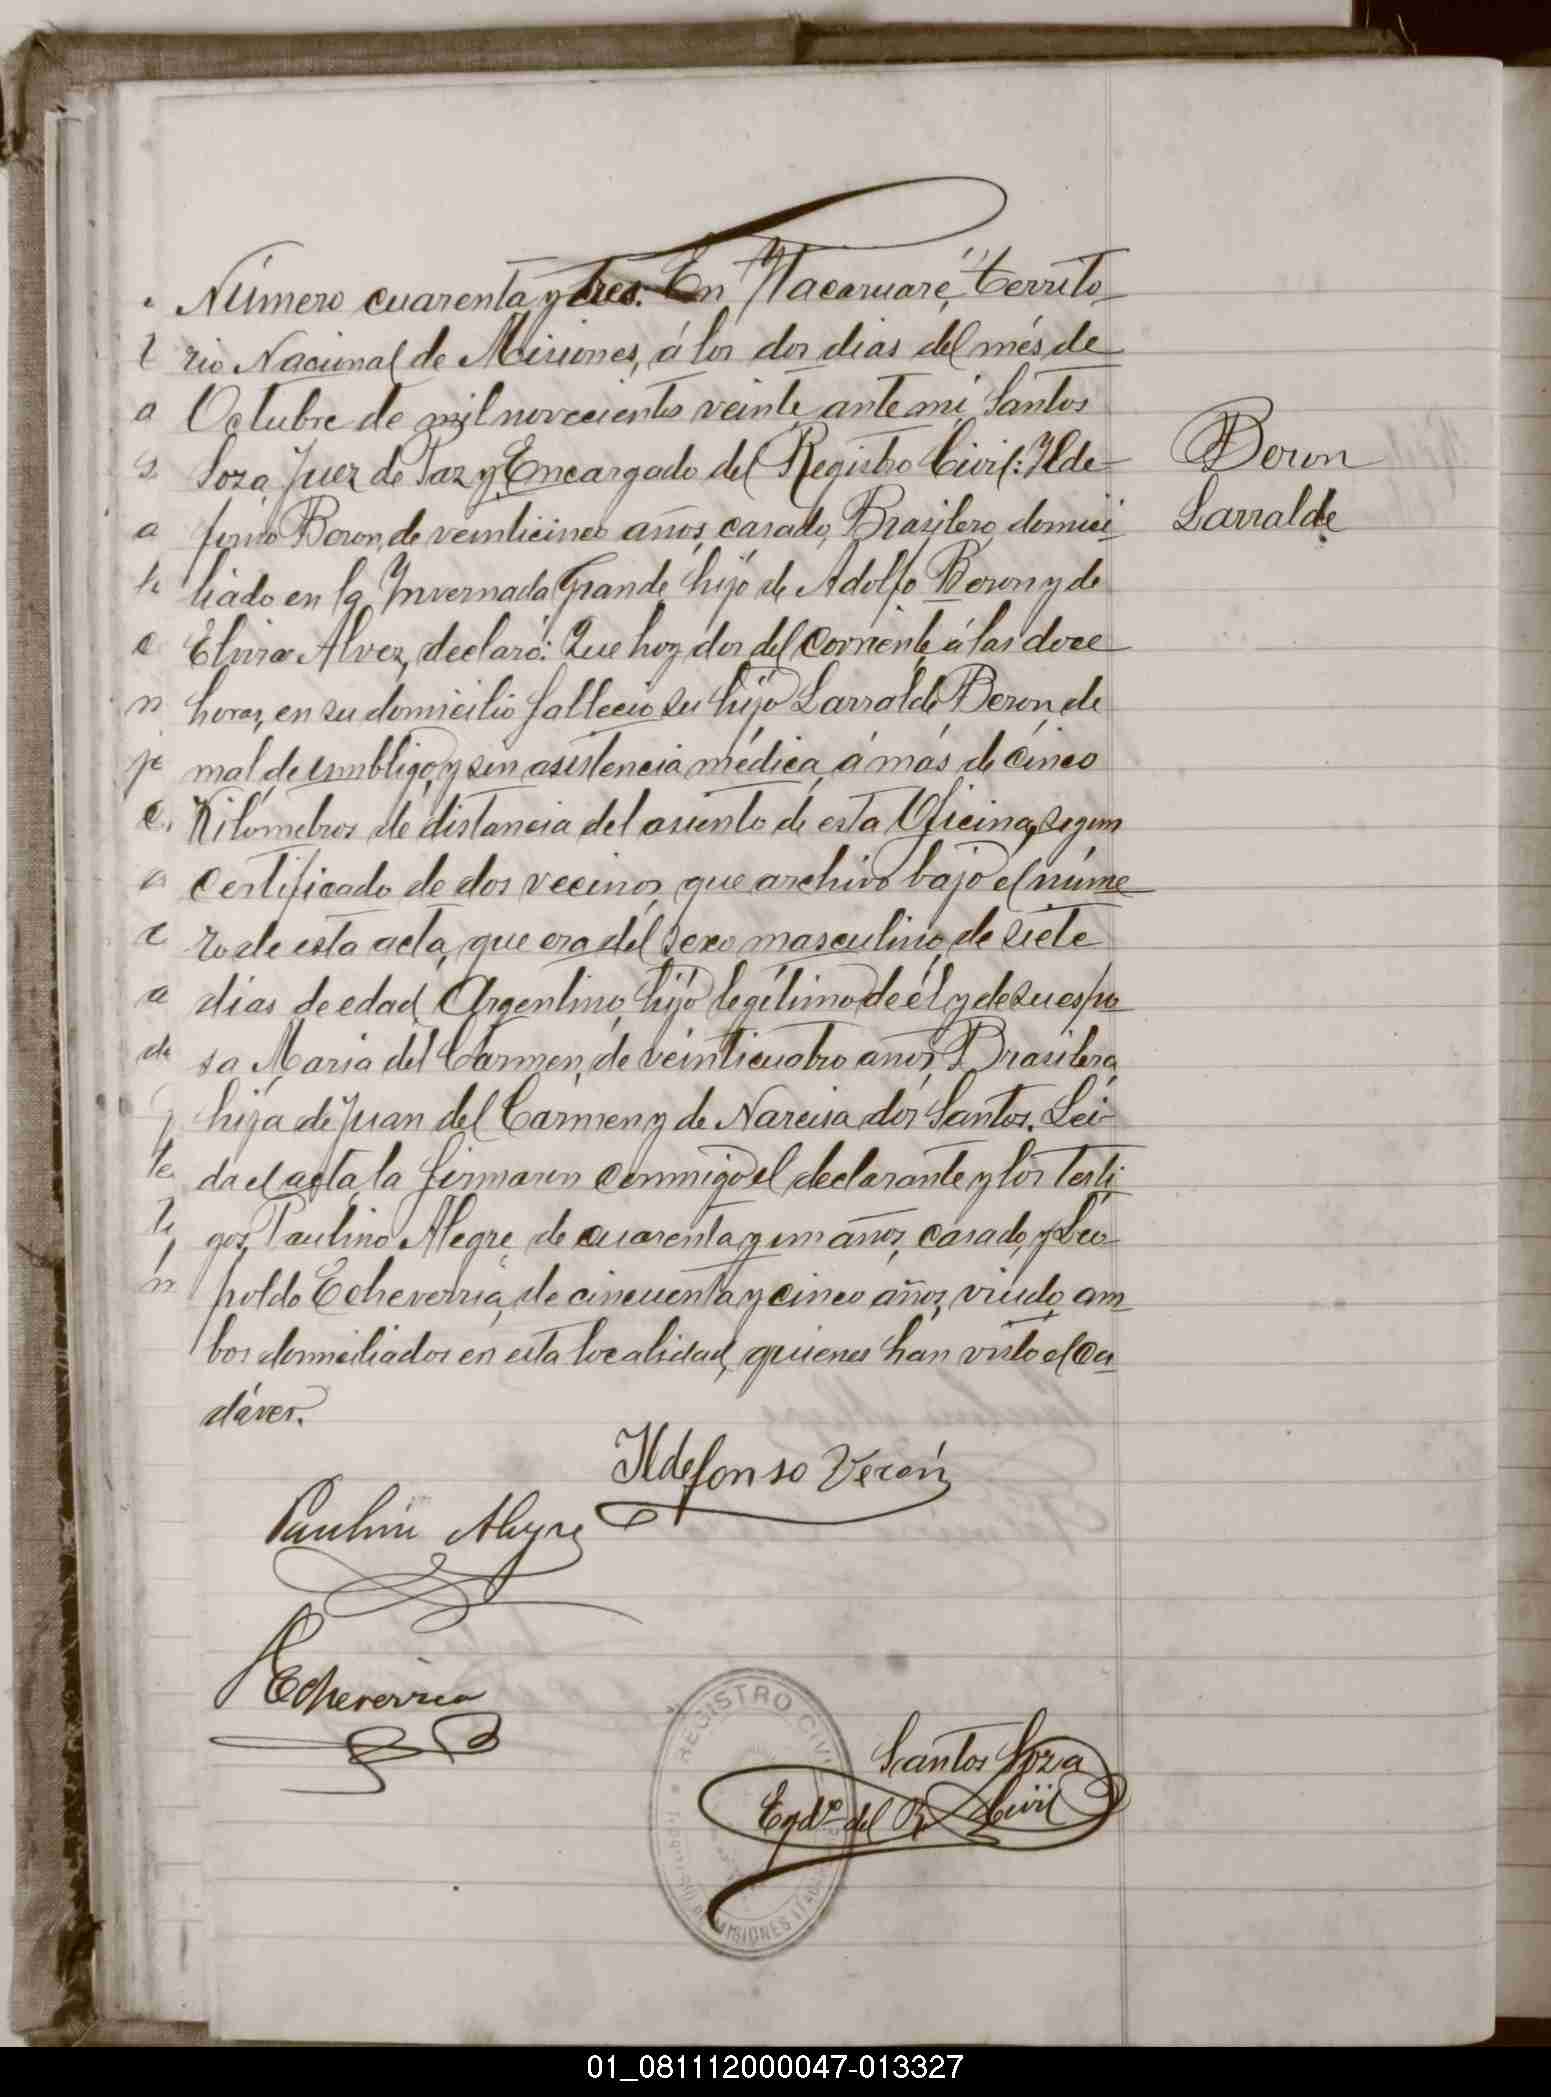 Número cuarenta y tres. En "Ytacaruaré," territo-
rio Nacional de Misiones, á los dos dias del més de
Octubre de mil novecientos veinte, ante mi, Santos
Soza, Juez de Paz y Encargado del Registro Civil: Ilde-
Beron
Larralde
fonso Beron, de veinticinco años, casado, Brasilero, domici-
liado en la Invernada Grande, hijo de Adolfo Beron y de
Elvira Alvez, declaró: Que hoy dos del corriente á las doce
horas, en su domicilio fallecio su hijo Larralde Beron, de
mal de umbligo, y sin asistencia médica, á más de cinco
Kilómetros de distancia del asiento de esta Oficina, segun
certificado de dos vecinos, que archivo bajo el núme-
ro de esta acta, que era del sexo masculino, de siete
dias de edad, Argentino, hijo legítimo de él y de su espo
sa Maria del Carmen, de veinticuatro años, Brasilera,
hija de Juan del Carmen y de Narcisa dos Santos. Lei-
da el acta, la firmaron conmigo el declarante y los testi-
gos, Paulino Alegre, de cuarenta y un años, casado, y Leo-
poldo Echeverria, de cincuenta y cinco años, viudo, am-
bos domiciliados en esta localidad, quienes han visto el ca-
dáver.
Ildefonso Verón
Paulino Alegre
Echeverria
REGISTRO CIVIL
MISIONES
Santos Soza
Egdo. del R. Civil
01_081112000047-013327